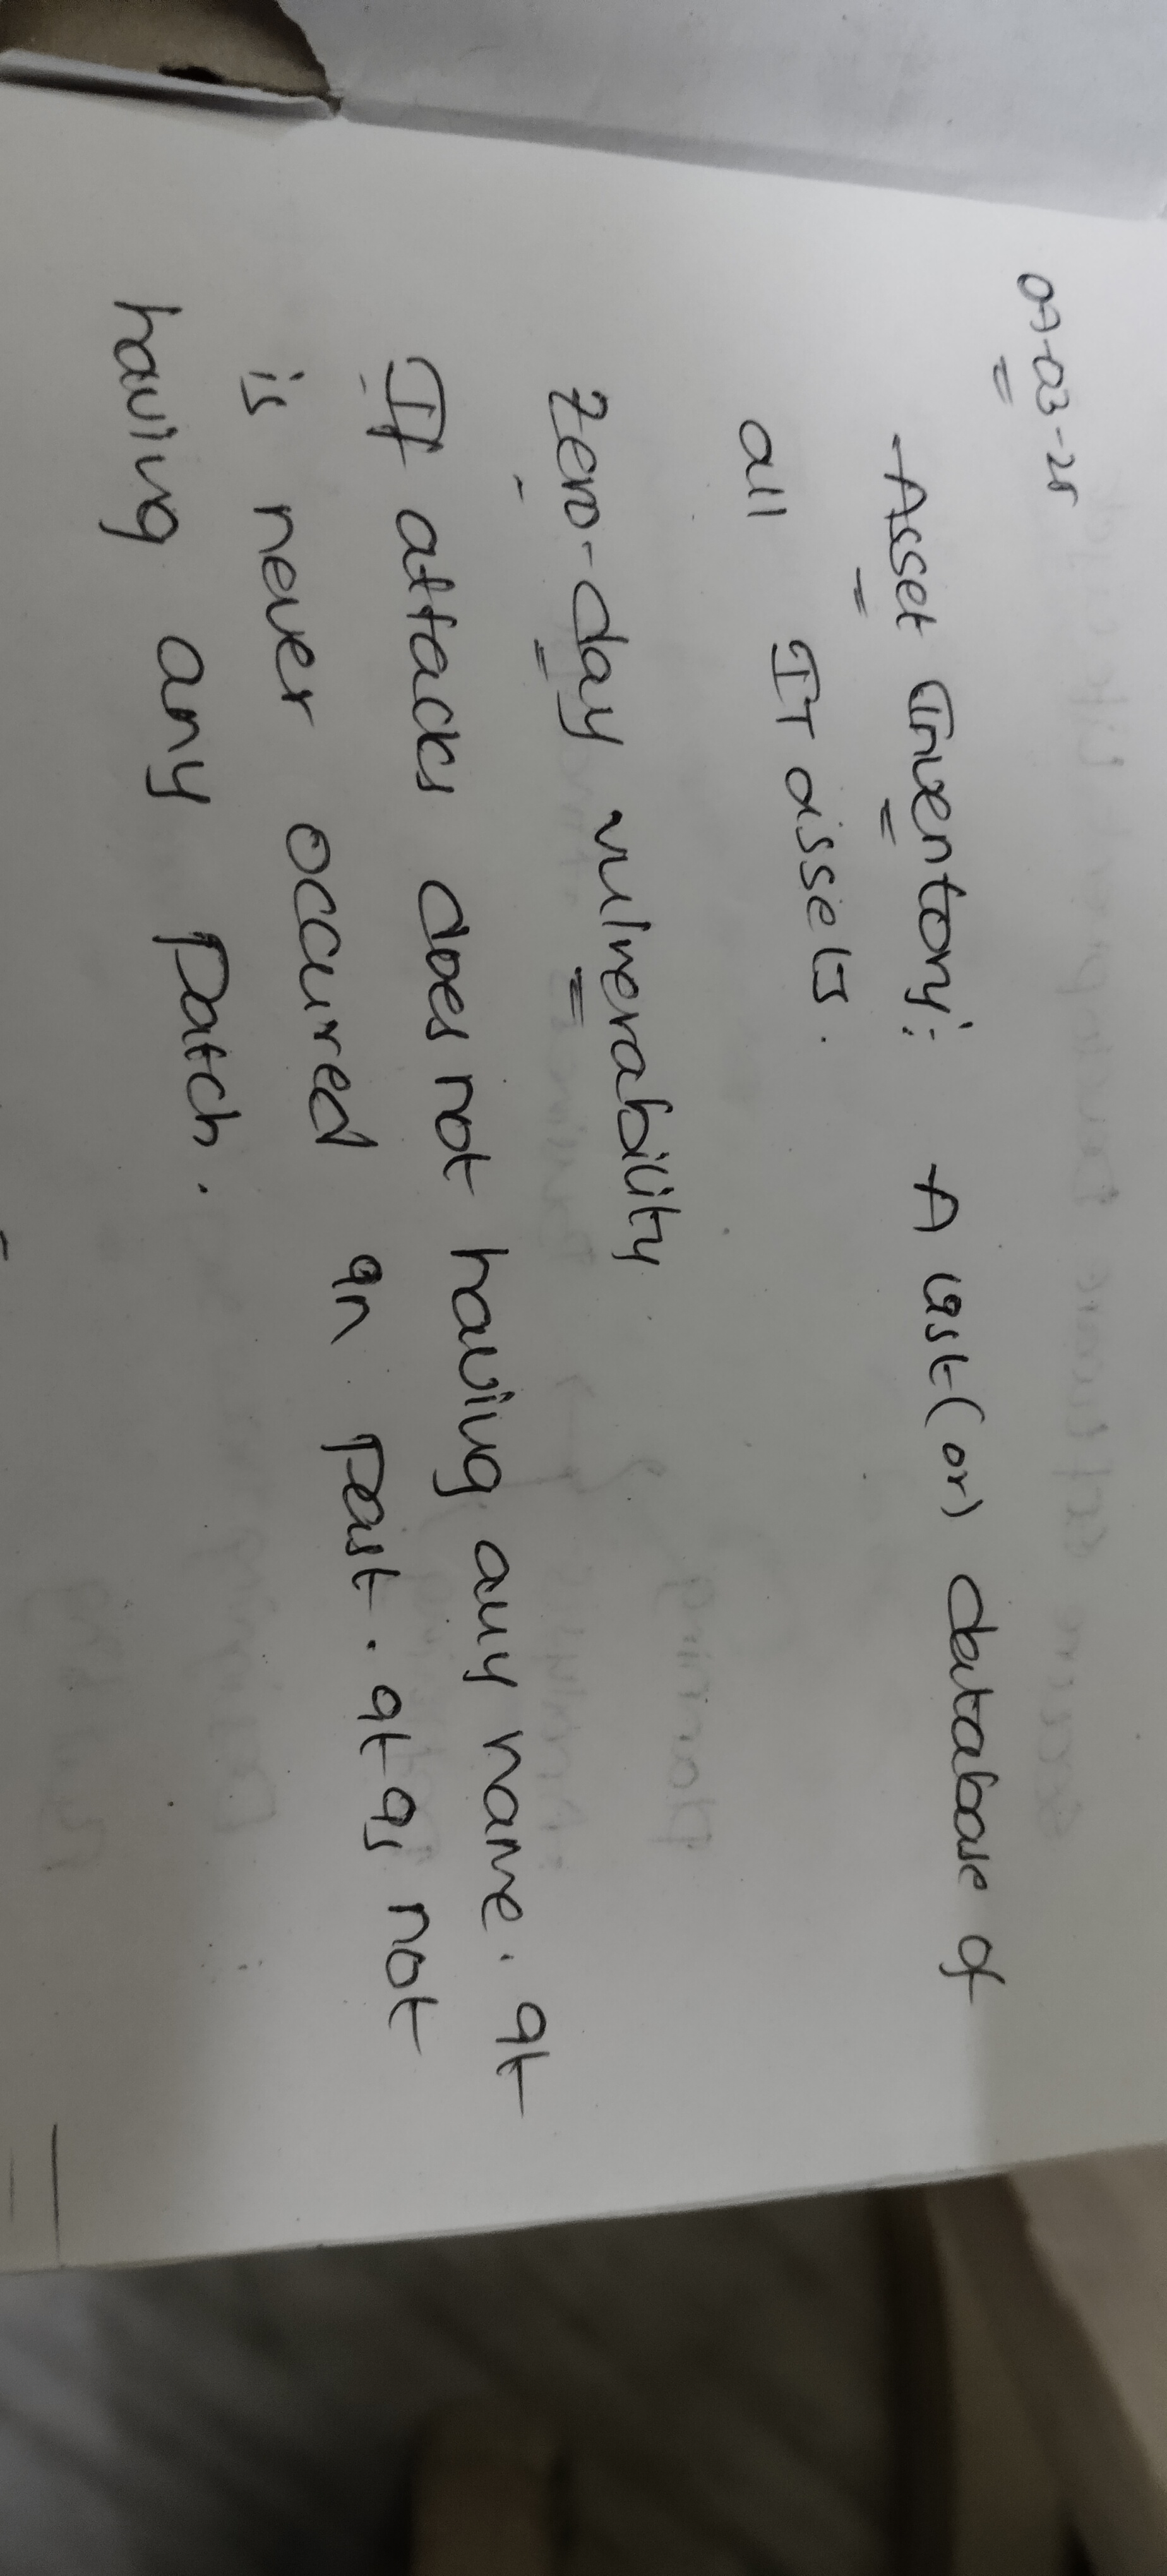 07-03-25
Asset Inventory:- A list (or) database of
all IT assets.
Zero-day vulnerability
If attacks does not having any name. It
is never occured in past. It is not
having any patch.